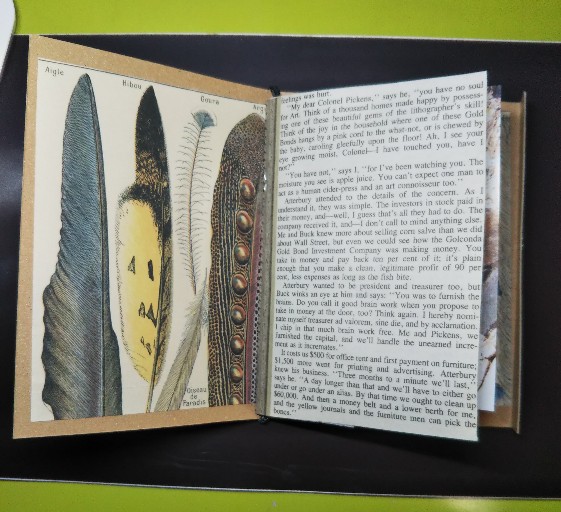 Aigle
Hibou
Goura
Argus
Oiseau
de
Paradis
feelings was hurt.
"My dear Colonel Pickens," says he, "you have no soul
for Art. Think of a thousand homes made happy by possess-
ing one of these beautiful gems of the lithographer's skill!
Think of the joy in the household where one of these Gold
Bonds hangs by a pink cord to the what-not, or is chewed by
the baby, caroling gleefully upon the floor! Ah, I see your
eye growing moist, Colonel—I have touched you, have I
not?"
"You have not," says I, "for I've been watching you. The
moisture you see is apple juice. You can't expect one man to
act as a human cider-press and an art connoisseur too."
Atterbury attended to the details of the concern. As I
understand it, they was simple. The investors in stock paid in
their money, and—well, I guess that's all they had to do. The
company received it, and—I don't call to mind anything else.
Me and Buck knew more about selling corn salve than we did
about Wall Street, but even we could see how the Golconda
Gold Bond Investment Company was making money. You
take in money and pay back ten per cent of it; it's plain
enough that you make a clean, legitimate profit of 90 per
cent, less expenses as long as the fish bite.
Atterbury wanted to be president and treasurer too, but
Buck winks an eye at him and says: "You was to furnish the
brains. Do you call it good brain work when you propose to
take in money at the door, too? Think again. I hereby nomi-
nate myself treasurer ad valorem, sine die, and by acclamation.
I chip in that much brain work free. Me and Pickens, we
furnished the capital, and we'll handle the unearned incre-
ment as it incremates."
It costs us $500 for office rent and first payment on furniture;
$1,500 more went for printing and advertising. Atterbury
knew his business. "Three months to a minute we'll last,"
says he. "A day longer than that and we'll have to either go
under or go under an alias. By that time we ought to clean up
$60,000. And then a money belt and a lower berth for me,
and the yellow journals and the furniture men can pick the
bones."